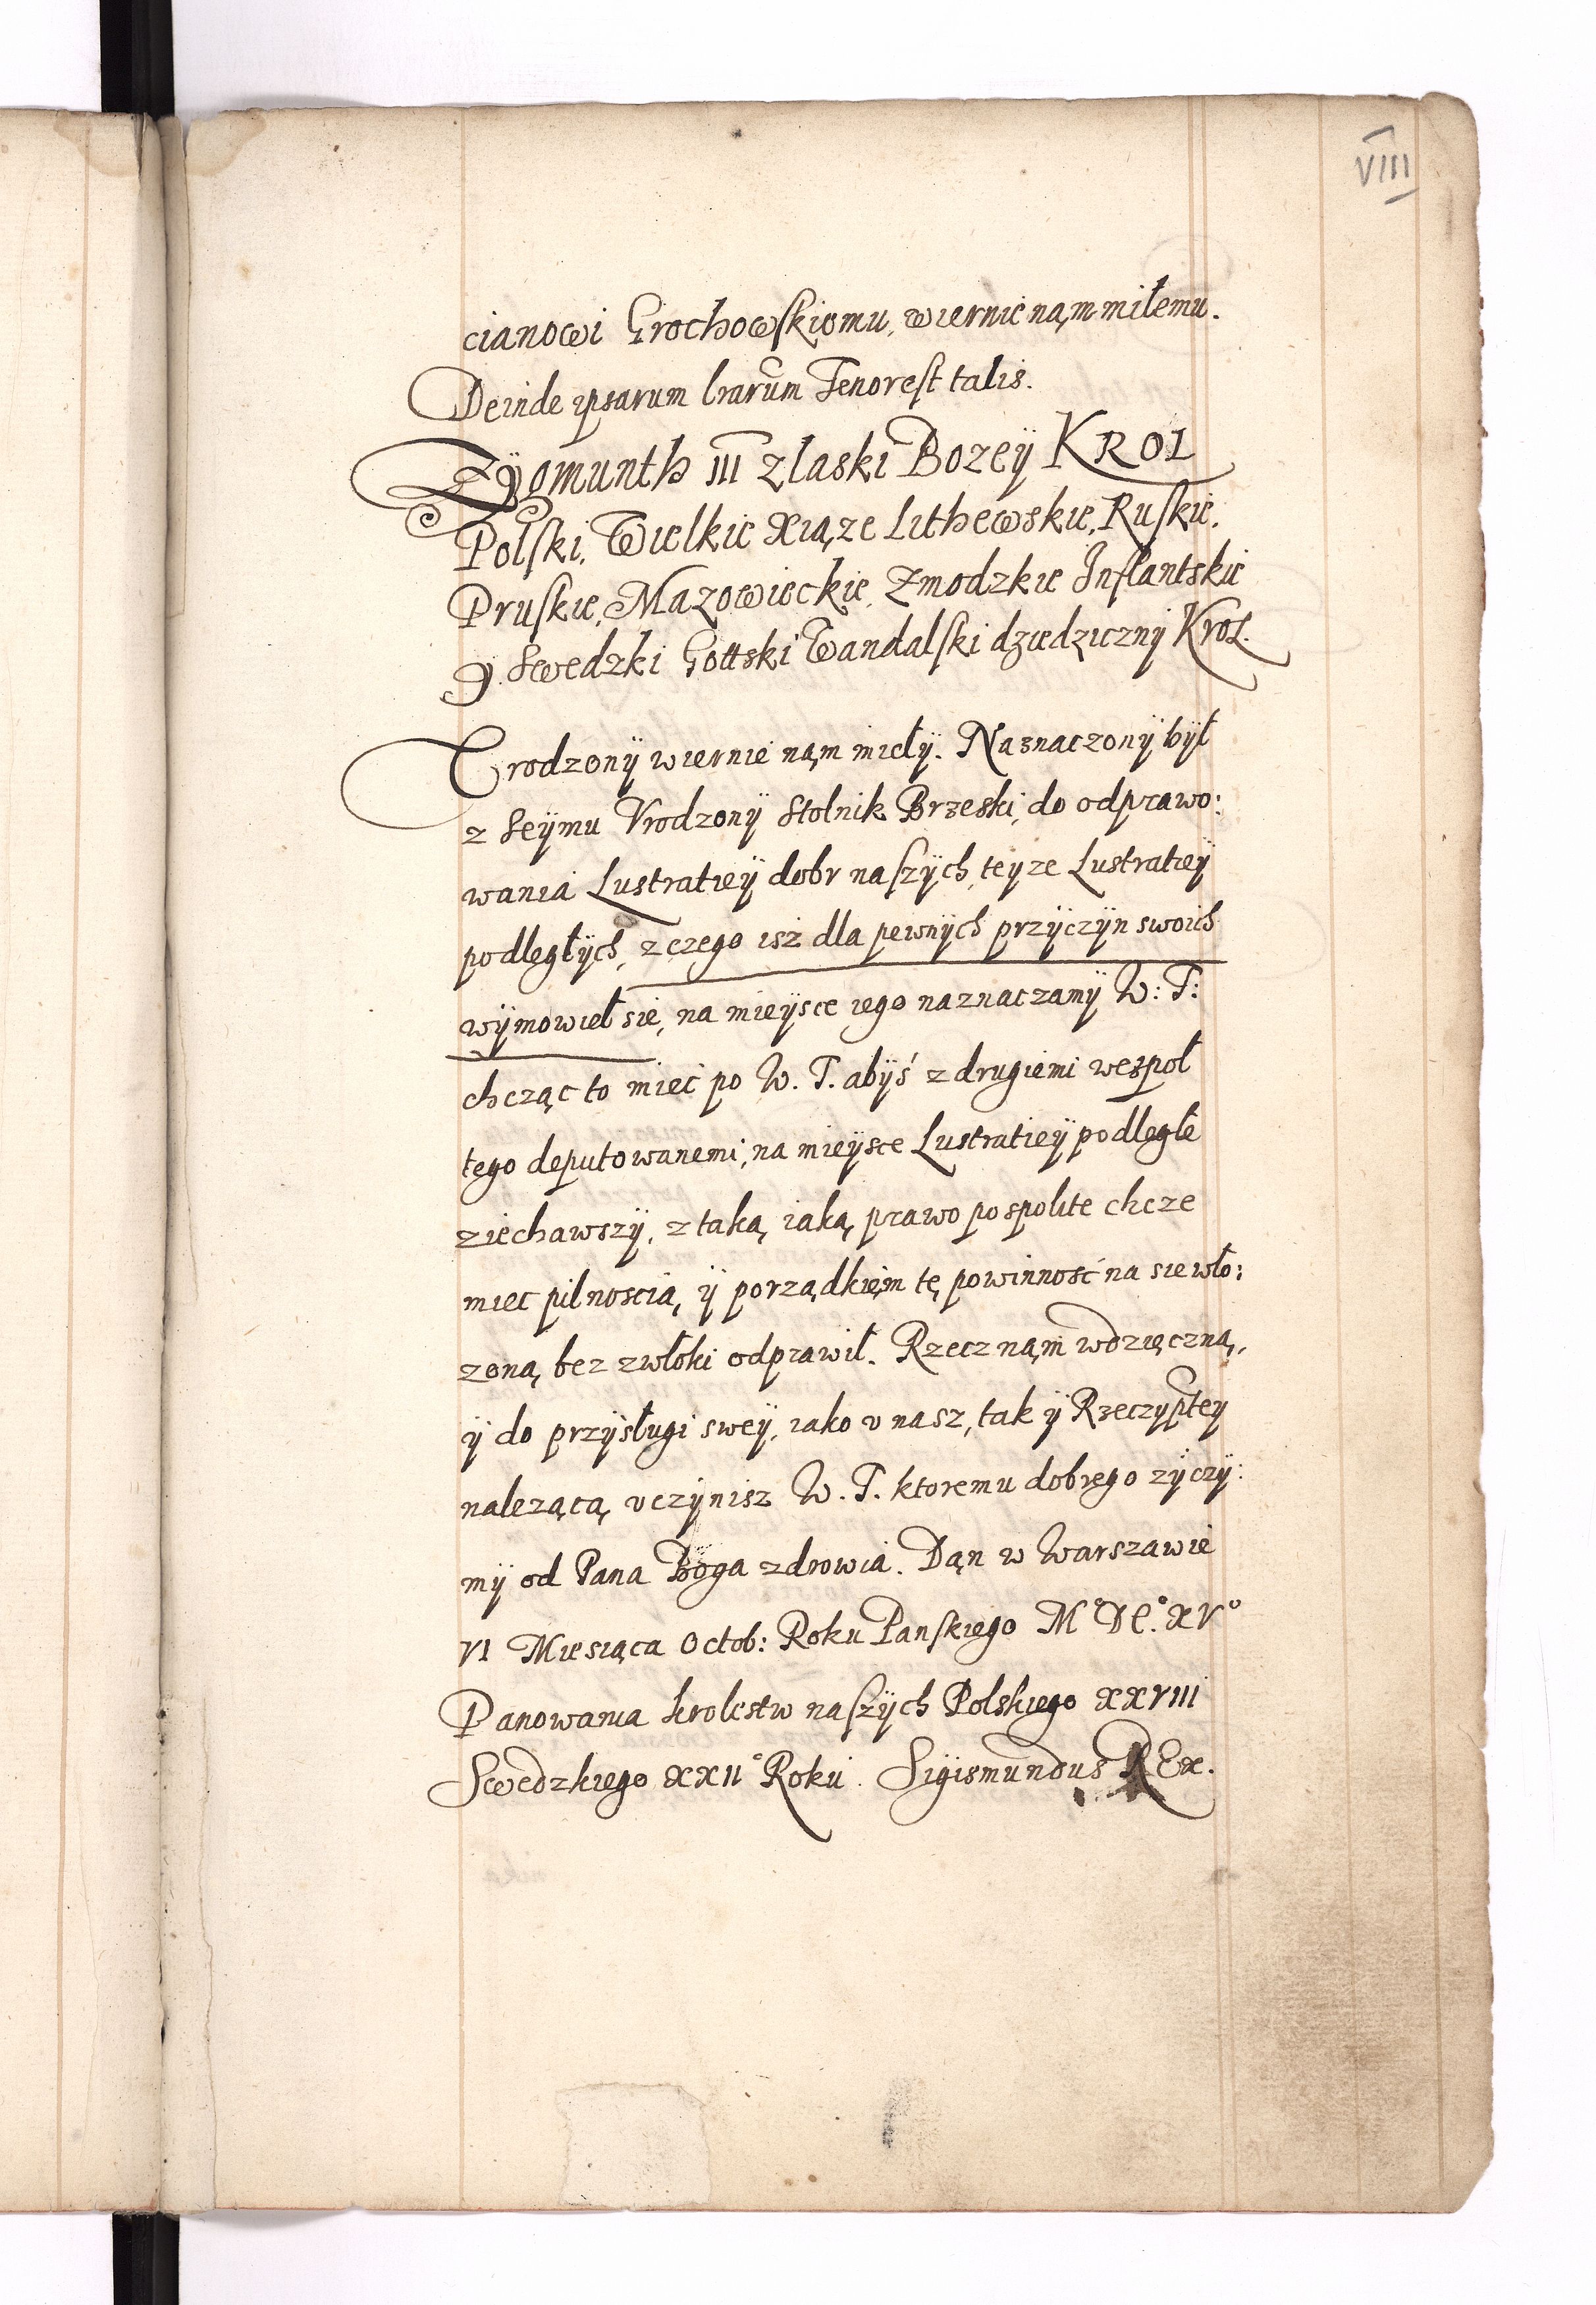 VIII
cianowi Grochowskiemu, wiernie nąm miłemu.
Deinde ipsarum lrarum Tenor est talis.
Zÿgmunth III z łaski Bozeÿ KROL
Polski, Wielkie Xiąze Lithewskie, Ruskie,
Pruskie, Mazowieckie, Zmodzkie Inflantskie
Y. Swedzki Gottski Wandalski dziedziczny Krol.
Urodzonÿ wiernie nąm miełÿ. Naznaczonÿ bÿł
z Seÿmu Vrodzonÿ Stolnik Brzeski, do odprawo:
wania Lustratieÿ dobr naszÿch, teÿze Lustratieÿ
podległÿch, z czego isż dla pewnÿch przÿczÿn swoich
wÿmowieł sie, na mieÿsce iego naznaczamÿ W: T:
chcząc to mieć po W. T. abÿś z drugiemi wespoł
tego deputowanemi, na mieÿsce Lustratieÿ podległe
ziechawszÿ, z taką, iaką, prawo pospolite chcze
miec pilnoscią, ÿ porządkięm tę powinność na sie wło:
zoną, bez zwłoki odprawił. Rzecz nąm wdzięczną,
ÿ do przÿsługi sweÿ, iako v nasz, tak ÿ Rzeczyptey
nalezącą, vczÿnisz W. T. ktoremu dobrego zÿczÿ:
mÿ od Pana Boga zdrowia. Dąn w Warszawie
VI Miesiąca Octob: Roku Panskiego M° DC.° XV°
Panowania krolestw naszÿch Polskiego XXVIII
Swedzkiego XXII° Roku. Sigismundus REx.